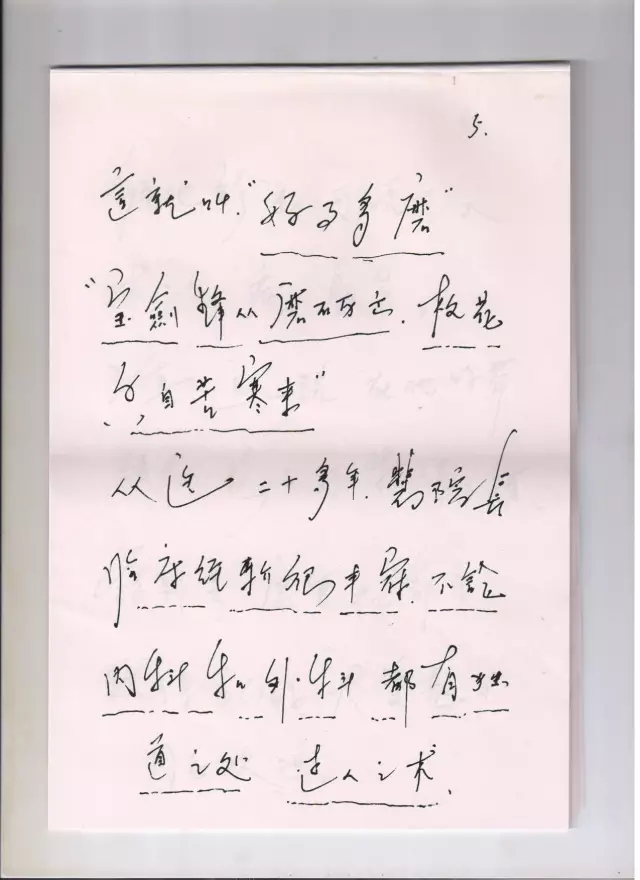 5.
這就叫"好事多磨"
"宝劍鋒从磨石出.梅花
自苦寒来"
从医二十多年.院長
临床经验很丰富.不論
内科和外科都有独
道之处 过人之术.